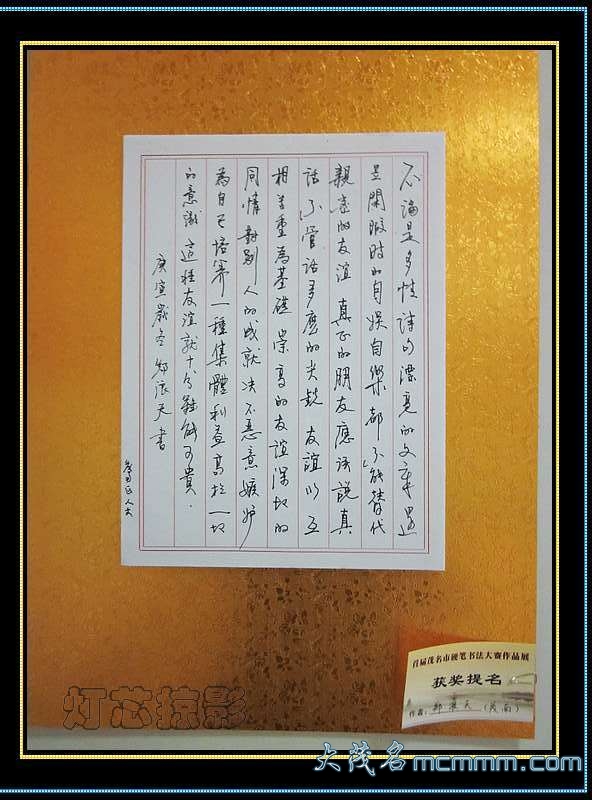 不論是多情詩句漂亮的文章還
是閑暇時的自娛自樂都不能替代
親密的友誼 真正的朋友應該說真
話不管話多麼的尖銳 友誼以互
相尊重為基礎 崇高的友誼深切的
同情對別人的成就决不惡意嫉妒
為自己培养一種集體利益高於一切
的意識 這種友誼就十分難能可貴.
庚寅歲冬 郑浪天 書
首届茂名市硬笔书法大赛作品展
获奖提名
作者: 郑浪天 (茂南)
灯芯掠影
大茂名 mcmmm.com